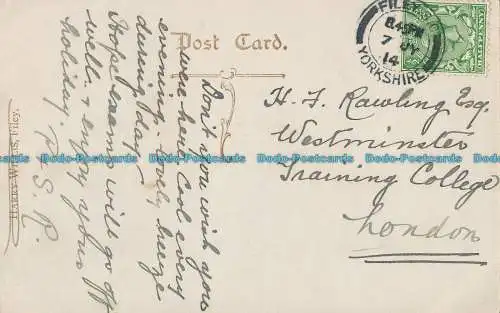 Post Card.
FILEY
8.45PM
7 JY
14
YORKSHIRE
Don't you wish you
were here. Cool every
evening - lovely breeze
during day.
Hope exams will go off
well. & enjoy your
holiday.
R.S.R.
H. J. Rawling Esq.
Westminster
Training College
London
Filey.
Dodo-Postcards Dodo-Postcards Dodo-Postcards Dodo-Postcards Dodo-Postcards